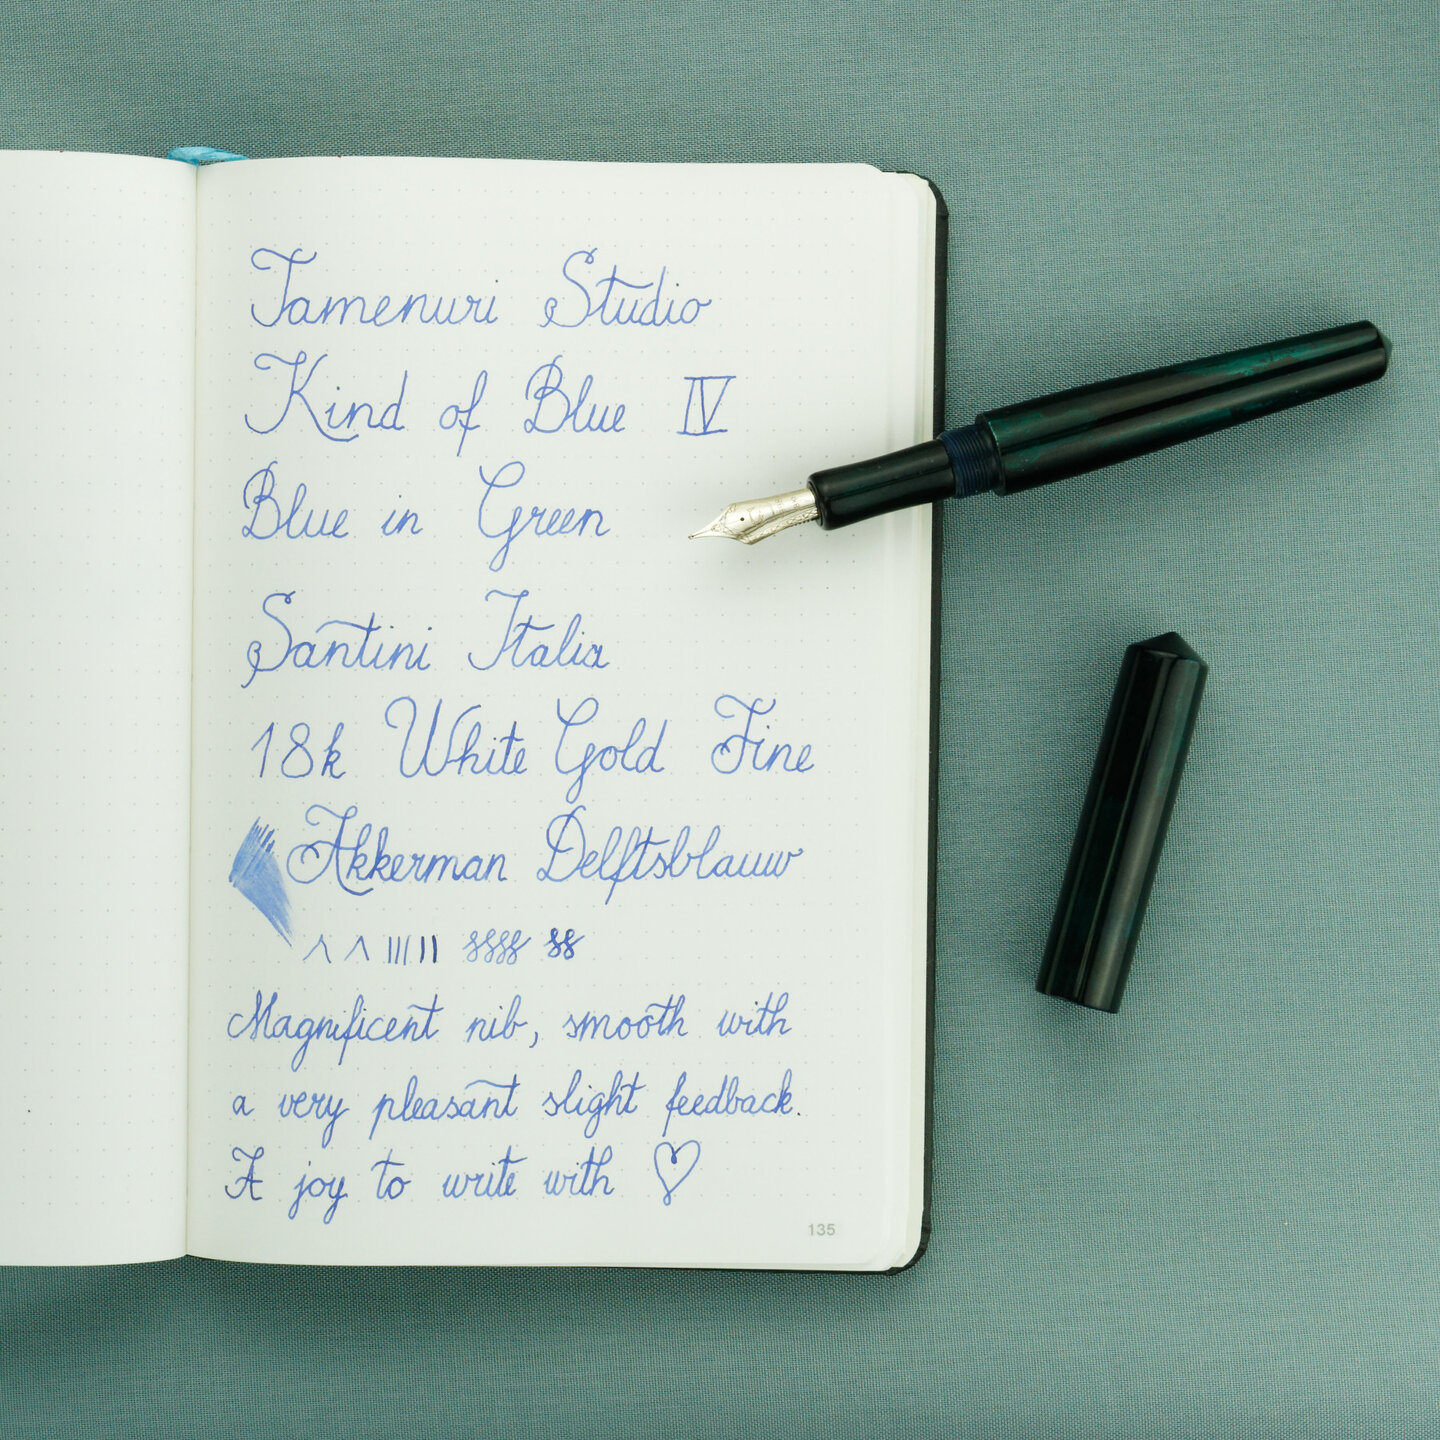 Tamenuri Studio
Kind of Blue IV
Blue in Green
Santini Italia
18k White Gold Fine
Akkerman Delftsblauw
Magnificent nib, smooth with
a very pleasant slight feedback.
A joy to write with ♡
135